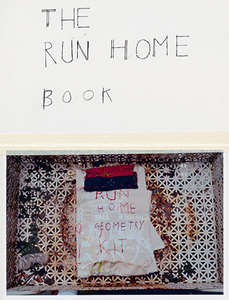 THE
RUN HOME
BOOK
RUN
HOME
GEOMETRY
KIT